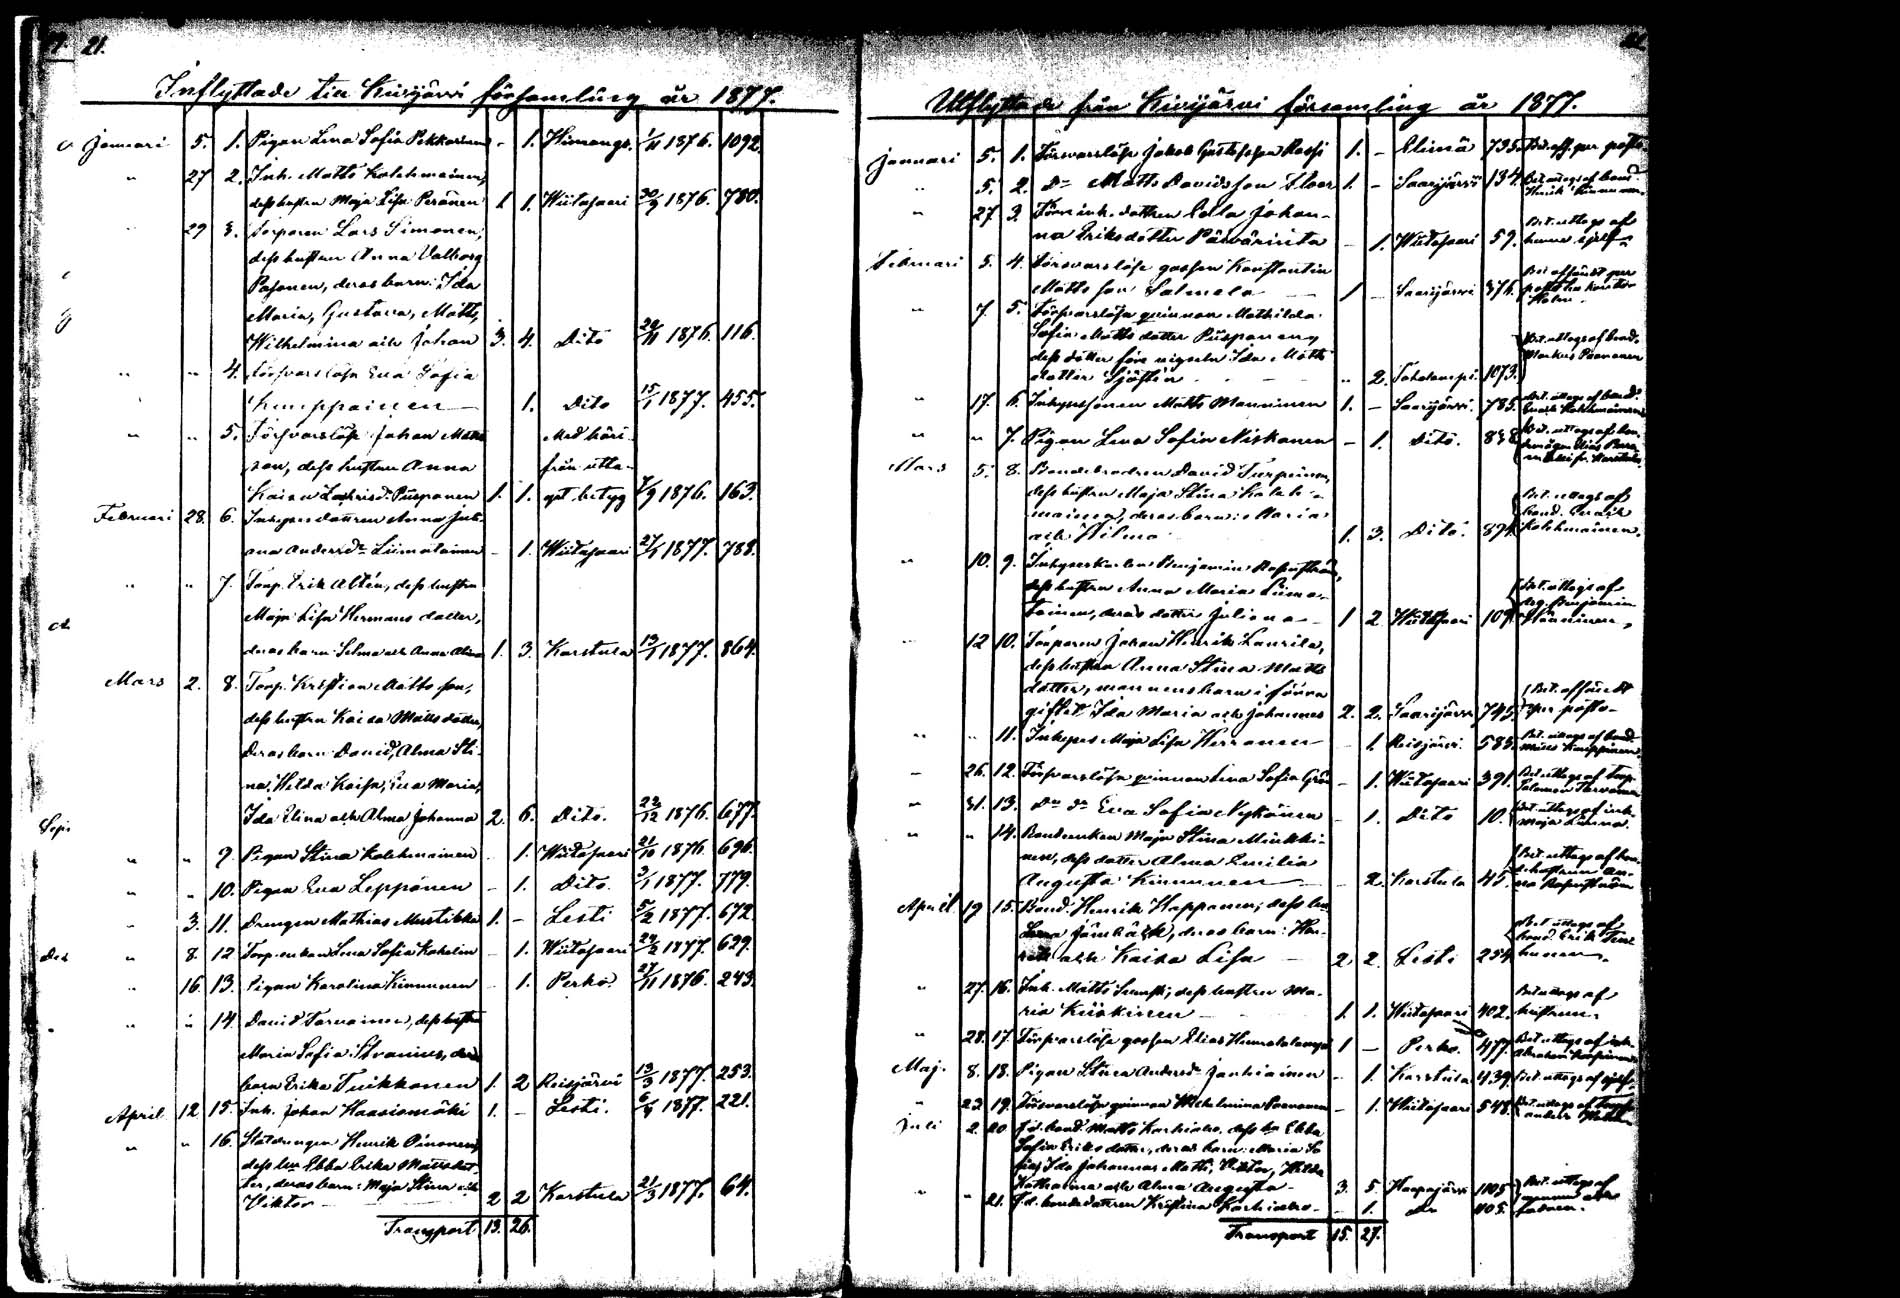 21.
Inflyttade till Kivijärvi församling år 1877.
Januari 5. 1. Pigan Lena Sofia Pekkarinen - 1. Himango. 1/11 1876. 1092.
" 27 2. Inh. Matts Kolehmainen,
dess hustru Maja Lisa Peränen 1 1. Wiitasaari 30/9 1876. 780.
" 29 3. Torparen Lars Simonen,
dess hustru Anna Valborg
Pasonen, deras barn: Ida
Maria, Gustava, Matts,
Wilhelmina och Johan 3. 4. Dito 24/11 1876. 116.
" " 4. Försvarslösa Eva Sofia
Kumppainen 1. Dito 15/1 1877. 455.
" " 5. Försvarslöse Johan Matts
son, dess hustru Anna Med häri-
från utta-
Kaisa Puspanen 1. 1. get betyg 7/9 1876. 163.
Februari 28. 6. Inhyses dottren Anna Joh-
ana Andersd:r Liimatainen - 1. Wiitasaari 27/1 1877. 788.
" " 7. Torp. Erik Altén, dess hustru
Maja Lisa Hermans dotter,
deras barn Selma och Anna Alma 1. 3. Karstula 13/1 1877. 864.
Mars 2. 8. Torp. Kristian Matts son,
dess hustru Kaisa Matts dotter,
deras barn David, Alma Sti-
na, Hilda Kaisa, Eva Maria,
Ida Elina och Alma Johanna 2. 6. Dito. 22/12 1876. 677.
" " 9. Pigan Stina Kolehmainen - 1. Wiitasaari 21/10 1876. 696.
" " 10. Pigan Eva Leppänen - 1. Dito. 3/1 1877. 779.
" 3. 11. Drengen Mathias Mustikka 1. - Lesti 5/2 1877. 672.
" 8. 12 Torp. enkan Lena Sofia - 1. Wiitasaari 24/2 1877. 629.
" 16. 13. Pigan Karolina Kinnunen - 1. Perho. 27/11 1876. 243.
" " 14. David Tarvainen, dess hustru
Maria Sofia Stranius, deras
barn Erika Tuikkanen 1. 2 Reisjärvi 13/3 1877. 253.
April 12 15. Inh. Johan Haasiomäki 1. - Lesti. 6/4 1877. 221.
" " 16. Henrik Oinonen,
dess hu Ebba Erika Matts dot-
ter, deras barn: Maja Stina och
Viktor 2 2 Karstula 21/3 1877. 64.
Transport 13. 26.
Utflyttade från Kivijärvi församling år 1877.
Januari 5. 1. Försvarslöse Jakob Gustafsson Rossi 1. - Elimä 735. Bet. aff. per posto
" 5. 2. D:o Matts Davidsson 1. - Saarijärvi 134. Bet. uttogs af bond.
Henrik Kinnunen
" 27 3. Förre inh. dottren Eva Johan-
na Eriksdotter - 1. Wiitasaari 59. Bet. uttogs af
henne sjelf.
Februari 5. 4. Försvarslöse gossen Konstantin
Matts son Salmela 1 - Saarijärvi 376. Bet. affändt per
" 7. 5. Försvarslösa qvinnan Mathilda
Sofia Matts dotter Puspanen,
dess dotter före vigseln Ida Matts
dotter Sjöstén " 2. Toholampi. 1073. Bet. uttogs af bond.
Markus Paananen
" 17. 6. Inhysesonen Matts Manninen 1. - Saarijärvi. 785. Bet. uttogs af bond.
" " 7. Pigan Lena Sofia Niskanen - 1. Dito. 838.
Mars 5. 8. Bondebrodren David Turpeinen,
dess hustru Maja Stina Koleh-
mainen, deras barn: Maria
och Hilma 1. 3. Dito. 894. Bet. uttogs af
bond. Enark
Kolehmainen.
" 10. 9. Inhyseskarlen Benjamin
dess hustru Anna Maria Liima-
tainen, deras dotter Juliana 1 2 Wiitasaari 109. Bet. uttogs af
dräg. Benjamin
Manninen,
12 10. Torparen Johan Henrik Laurila,
dess hustru Anna Stina Matts
dotter, mannens barn i förra
giftet Ida Maria och Johannes 2. 2. Saarijärvi 745. Bet. affändt
per posto
" " 11. Inhyses Maja Lisa Herranen - 1. Reisjärvi. 585. Bet. uttogs af bond.
26. 12. Försvarslösa qvinnan Lena Sofia - 1. Wiitasaari 391. Bet. uttogs af Torp.
Salomon Tarvainen
" 31. 13. D:o d:o Eva Sofia Nykänen - 1. Dito 10. Bet. uttogs af inh.
" " 14. Bondenkan Maja Stina Minkki-
nen, dess dotter Alma Emilia
Augusta Kinnunen - 2. Karstula 45. Bet. uttogs af bon-
April 19 15. Bond. Henrik Happonen, dess hu
deras barn: Hen-
rik och Kaisa Lisa 2 2. Lesti 254. Bet. uttogs af
bond. Erik
" 27. 16. Inh. Matts dess hustru Ma-
ria Kiiskinen 1. 1. Wiitasaari 402. Bet. uttogs af
hustrun.
" 28. 17. Försvarslöse gossen Elias 1 - Perho. 477. Bet. uttogs af inh.
Maj. 8. 18. Pigan Stina Andersd:r Jauhiainen - 1. Karstula 439. Bet. uttogs af sjelf.
" 23 19. Försvarslösa qvinnan Wilhelmina Paananen - 1. Wiitasaari 548. Bet. uttogs af Torp.
Juli 2. 20 F.d. bond. Matts Karhiaho, dess hu Ebba
Sofia Eriksdotter, deras barn: Maria So
fia, Ida Johannes Matts, Viktor, Hilda
Katharina och Alma Augusta 3. 5. Haapajärvi 1105. Bet. uttogs af
" " 21. F.d. bondedottren Kristina Karhiaho - 1. D:o 1105. fadren.
Transport 15. 27.